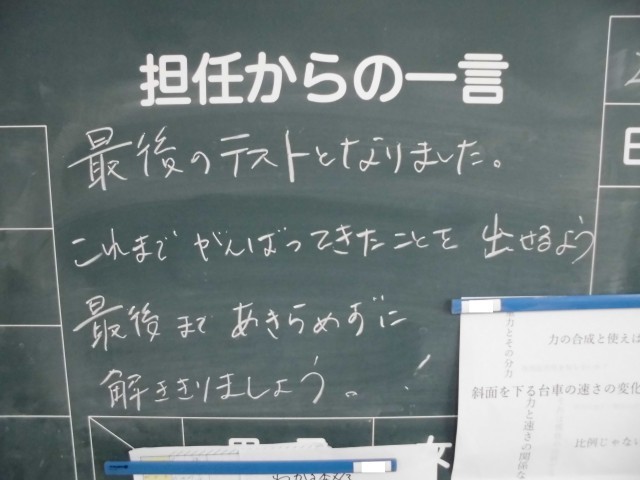 担任からの一言
最後のテストとなりました。
これまでがんばってきたことを出せるよう
最後まであきらめずに
解ききりましょう。!
力とその分力
力の合成と使えば
斜面を下る台車の速さの変化
力と速さの関係な
比例じゃない